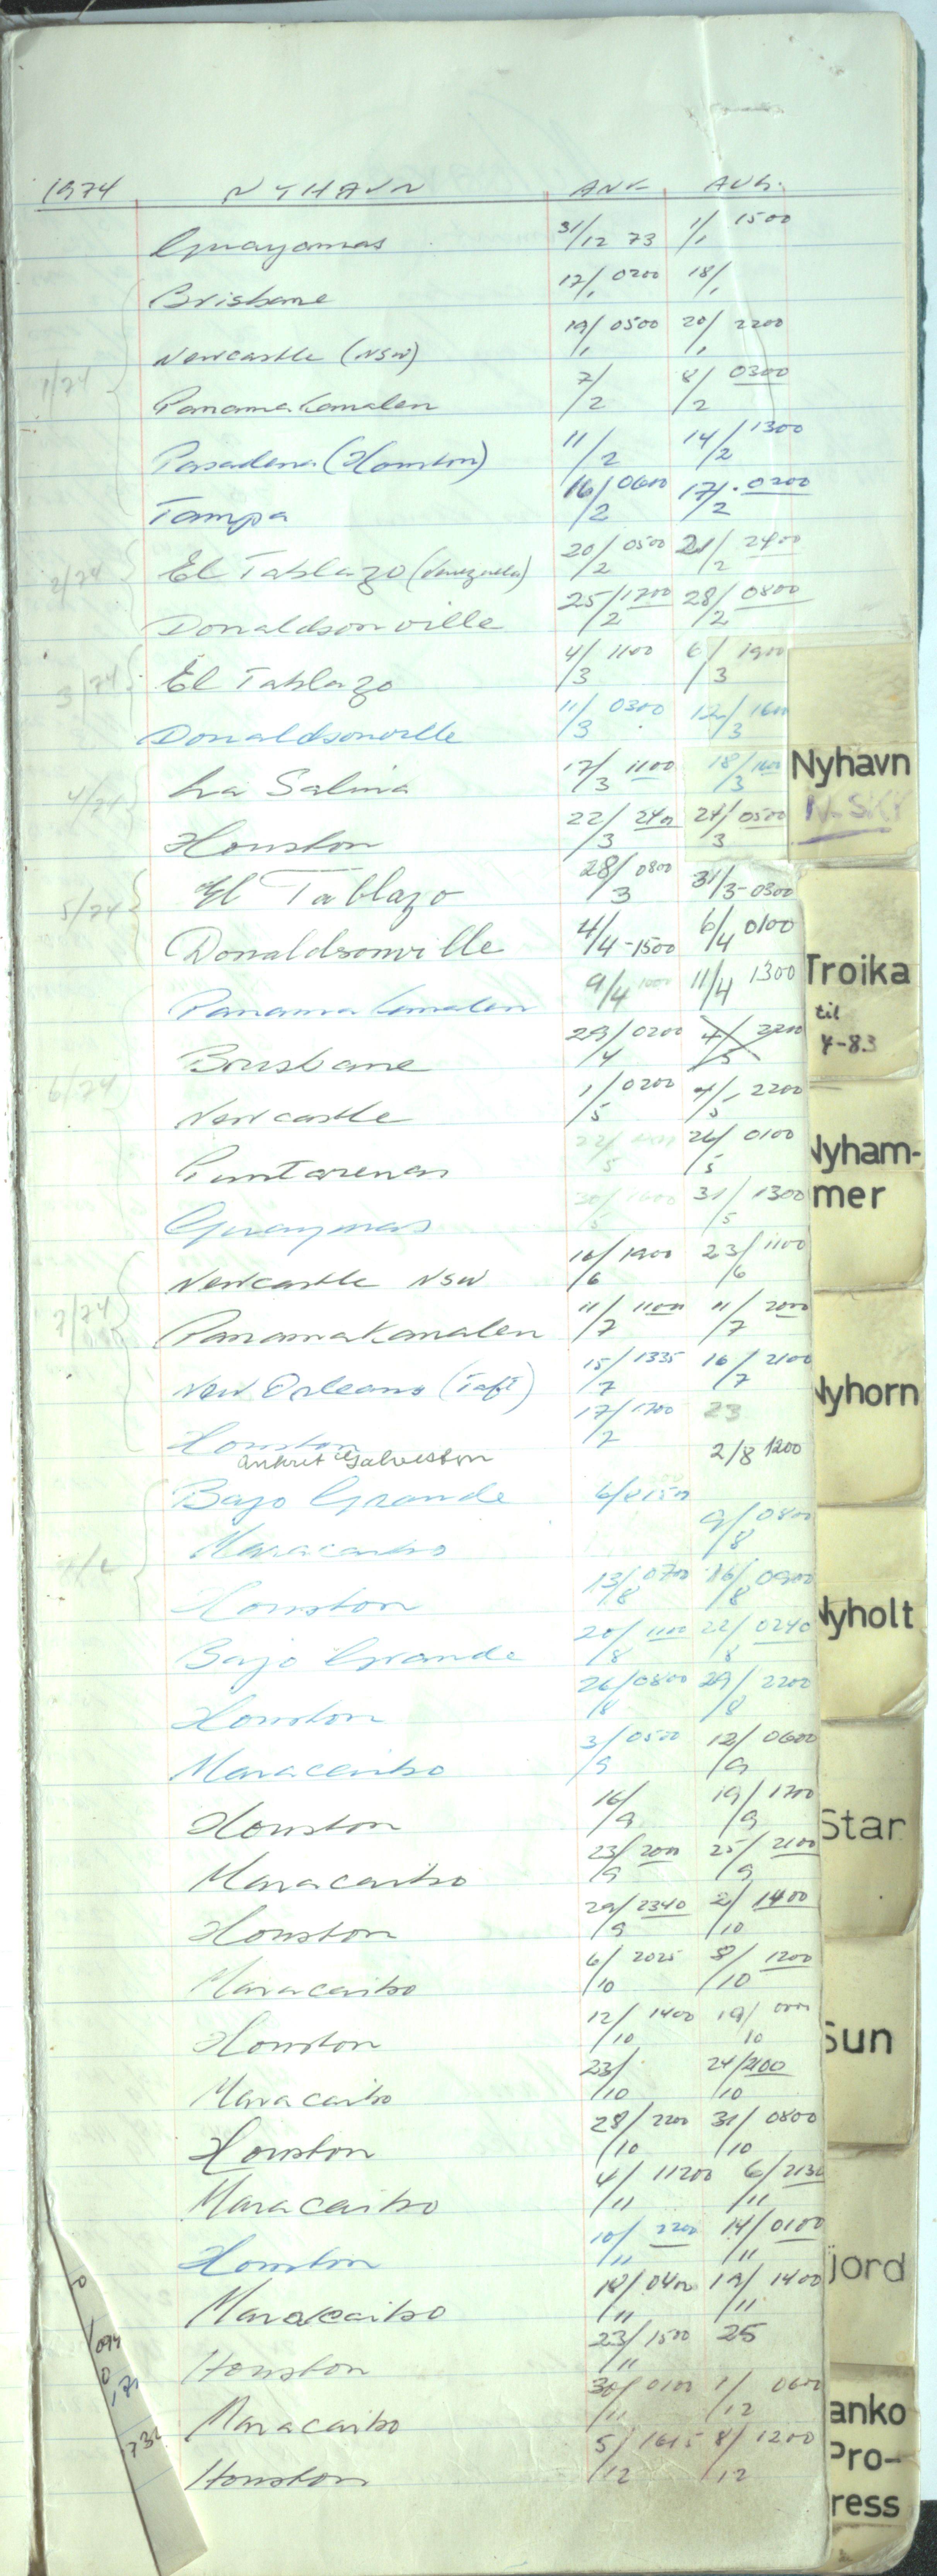 1974 NYHAVN ANK. AVG.
Guayamas 31/12 73 1/1 1500
Brisbane 17/1 0200 18/1
Newcastle (NSW) 19/1 0500 20/1 2200
1/74
Panama Canalen 7/2 8/2 0300
Pasadena (Houston) 11/2 14/2 1300
Tampa 16/2 0600 17/2 0200
2/74 El Tablazo (Venezuela) 20/2 0500 21/2 2400
Donaldsonville 25/2 1700 28/2 0800
3/74 El Tablazo 4/3 1100 6/3 1900
Donaldsonville 11/3 0300 12/3 1600
4/74 La Salina 17/3 1100 18/3
Houston 22/3 24/3 0500
5/74 El Tablazo 28/3 0800 31/3-0300
Donaldsonville 4/4-1500 6/4 0100
Panama Canalen 9/4 11/4 1300
Brisbane 29/4 0200 4/5 2200
6/74
Newcastle 1/5 0200 4/5 2200
Puntarenas 22/5 26/5 0100
Guaymas 30/5 31/5 1300
Newcastle NSW 16/6 1900 23/6 1100
7/74
Panamakanalen 11/7 1100 11/7 2000
New Orleans (Taft) 15/7 1335 16/7 2100
Houston 17/7 1700 23
ankret Galveston 2/8 1200
Bajo Grande 6/8
Maracaibo 9/8 0800
Houston 13/8 0700 16/8 0900
Bajo Grande 20/8 1100 22/8 0240
Houston 26/8 0800 29/8 2200
Maracaibo 3/9 0500 12/9 0600
Houston 16/9 19/9 1700
Maracaibo 23/9 2000 25/9 2100
Houston 29/9 2340 2/10 1400
Maracaibo 6/10 2025 8/10 1200
Houston 12/10 1400 19/10
Maracaibo 23/10 24/10 2100
Houston 28/10 2200 31/10 0800
Maracaibo 4/11 11200 6/11 2130
Houston 10/11 2200 14/11 0100
Maracaibo 18/11 0400 19/11 1400
Houston 23/11 1500 25
Maracaibo 30/11 0100 1/12 0600
Houston 5/12 1615 8/12 1200
Nyhavn
Troika
til
4-83
Nyham-
mer
Nyhorn
Nyholt
Star
Sun
jord
anko
Pro-
ress